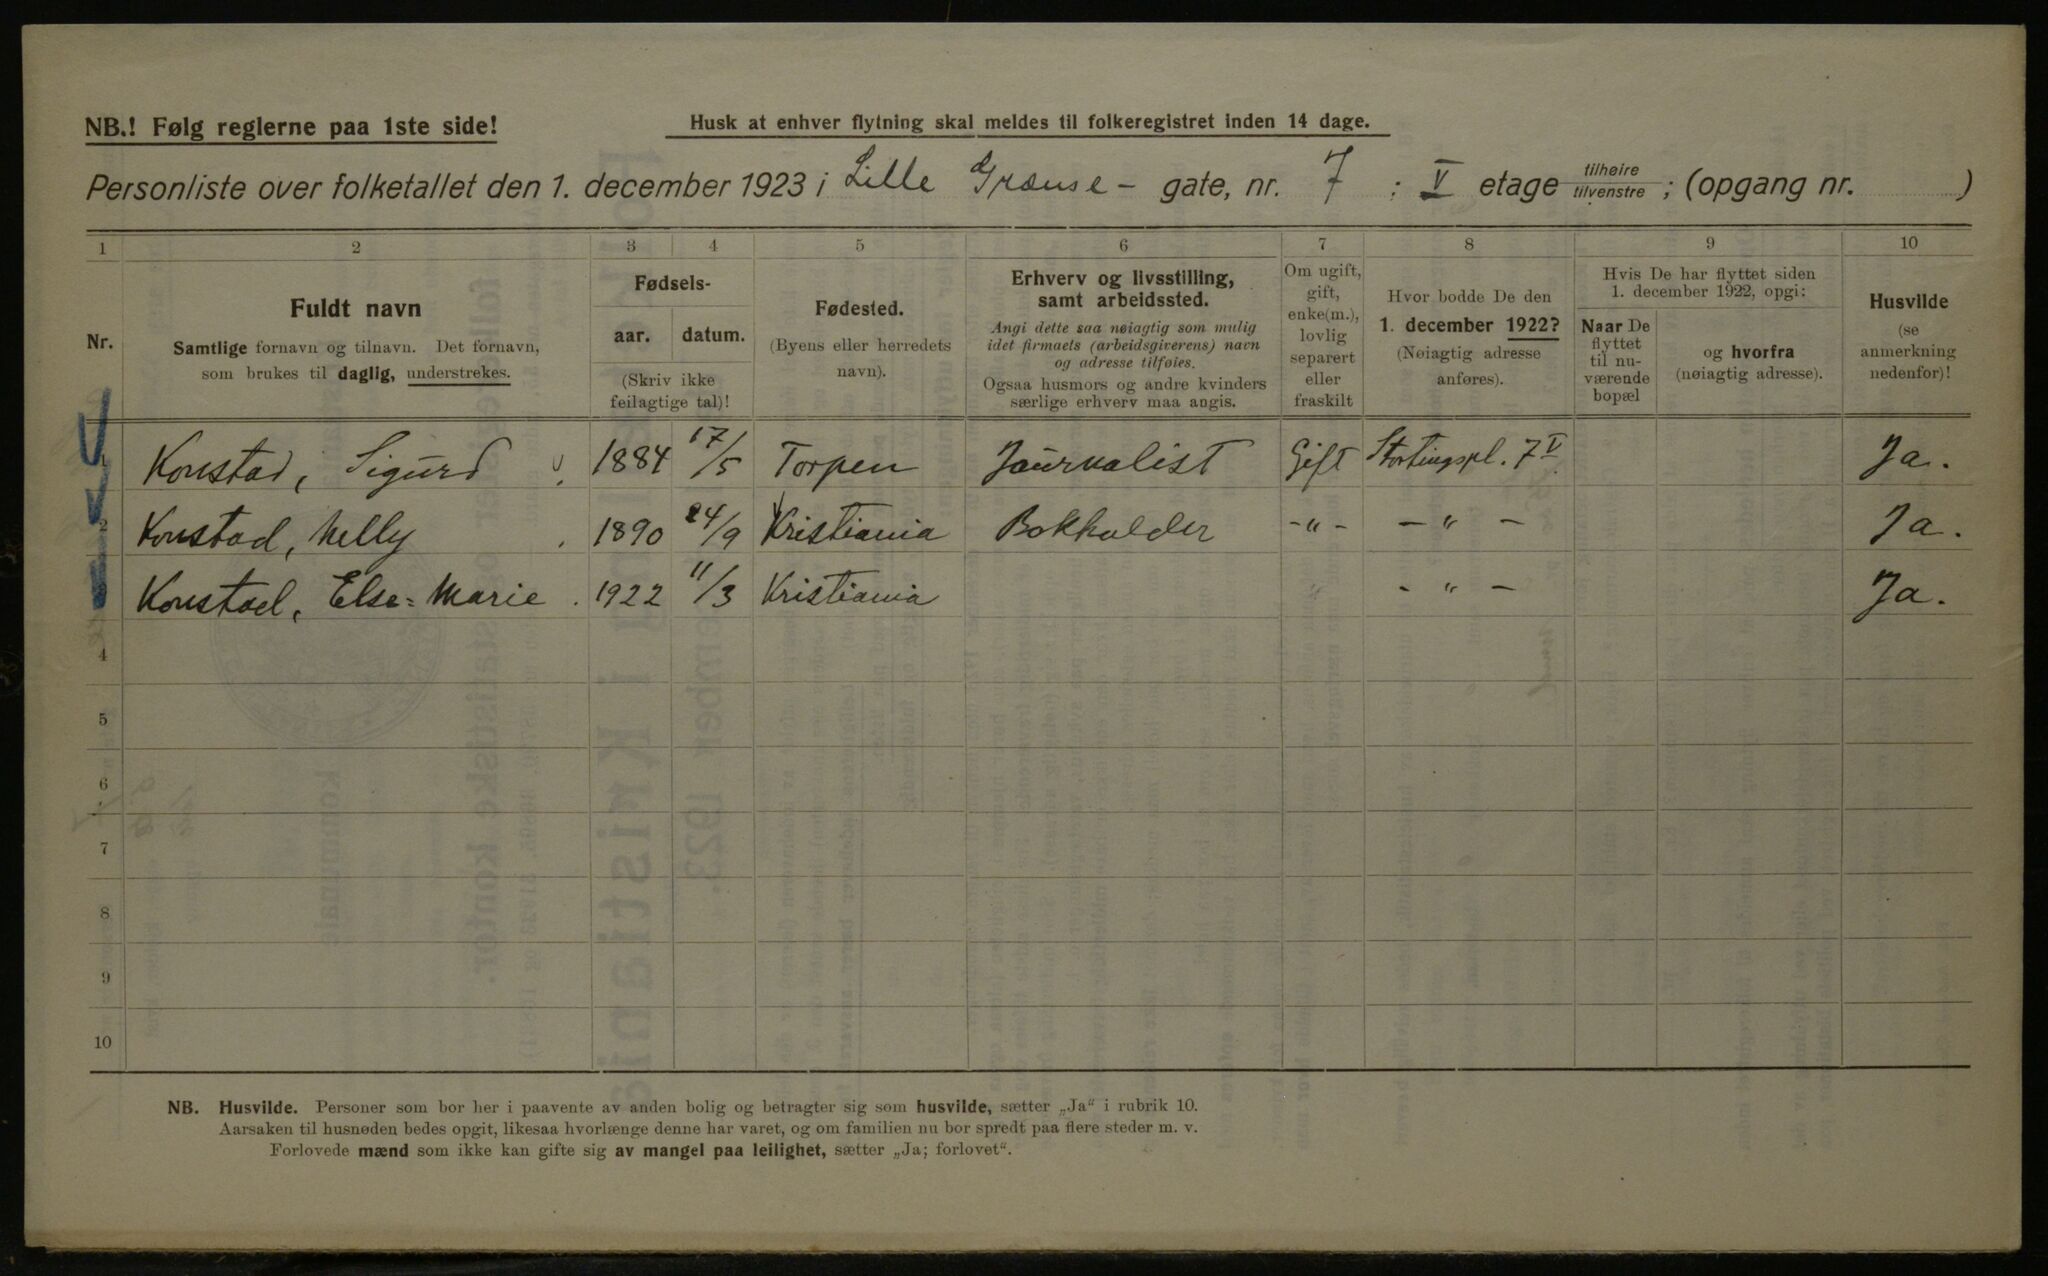 NB.! Følg reglerne paa 1ste side!
Husk at enhver flytning skal meldes til folkeregistret inden 14 dage.
Personliste over folketallet den 1. december 1923 i Lille Grænse- gate, nr. 7 : V etage tilhøire tilvenstre ; (opgang nr. )
1 2 3 4 5 6 7 8 9 10
Nr.
Fuldt navn
Samtlige fornavn og tilnavn. Det fornavn,
som brukes til daglig, understrekes.
Fødsels-
aar. datum.
(Skriv ikke
feilagtige tal)!
Fødested.
(Byens eller herredets
navn).
Erhverv og livsstilling,
samt arbeidssted.
Angi dette saa nøiagtig som mulig
idet firmaets (arbeidsgiverens) navn
og adresse tilføies.
Ogsaa husmors og andre kvinders
særlige erhverv maa angis.
Om ugift,
gift,
enke(m.),
lovlig
separert
eller
fraskilt
Hvor bodde De den
1. december 1922?
(Nøiagtig adresse
anføres).
Hvis De har flyttet siden
1. december 1922, opgi:
Naar De
flyttet
til nu-
værende
bopæl
og hvorfra
(nøiagtig adresse).
Husvilde
(se
anmerkning
nedenfor)!
1 Konstad, Sigurd 1884 17/5 Torpen Journalist Gift Stortingspl. 7 V Ja.
2 Konstad, Nelly 1890 24/9 Kristiania Bokholder -"- -"- Ja.
3 Konstad, Else-Marie 1922 11/3 Kristiania " -"- Ja.
4
5
6
7
8
9
10
NB. Husvilde. Personer som bor her i paavente av anden bolig og betragter sig som husvilde, sætter „Ja“ i rubrik 10.
Aarsaken til husnøden bedes opgit, likesaa hvorlænge denne har varet, og om familien nu bor spredt paa flere steder m. v.
Forlovede mænd som ikke kan gifte sig av mangel paa leilighet, sætter „Ja; forlovet“.